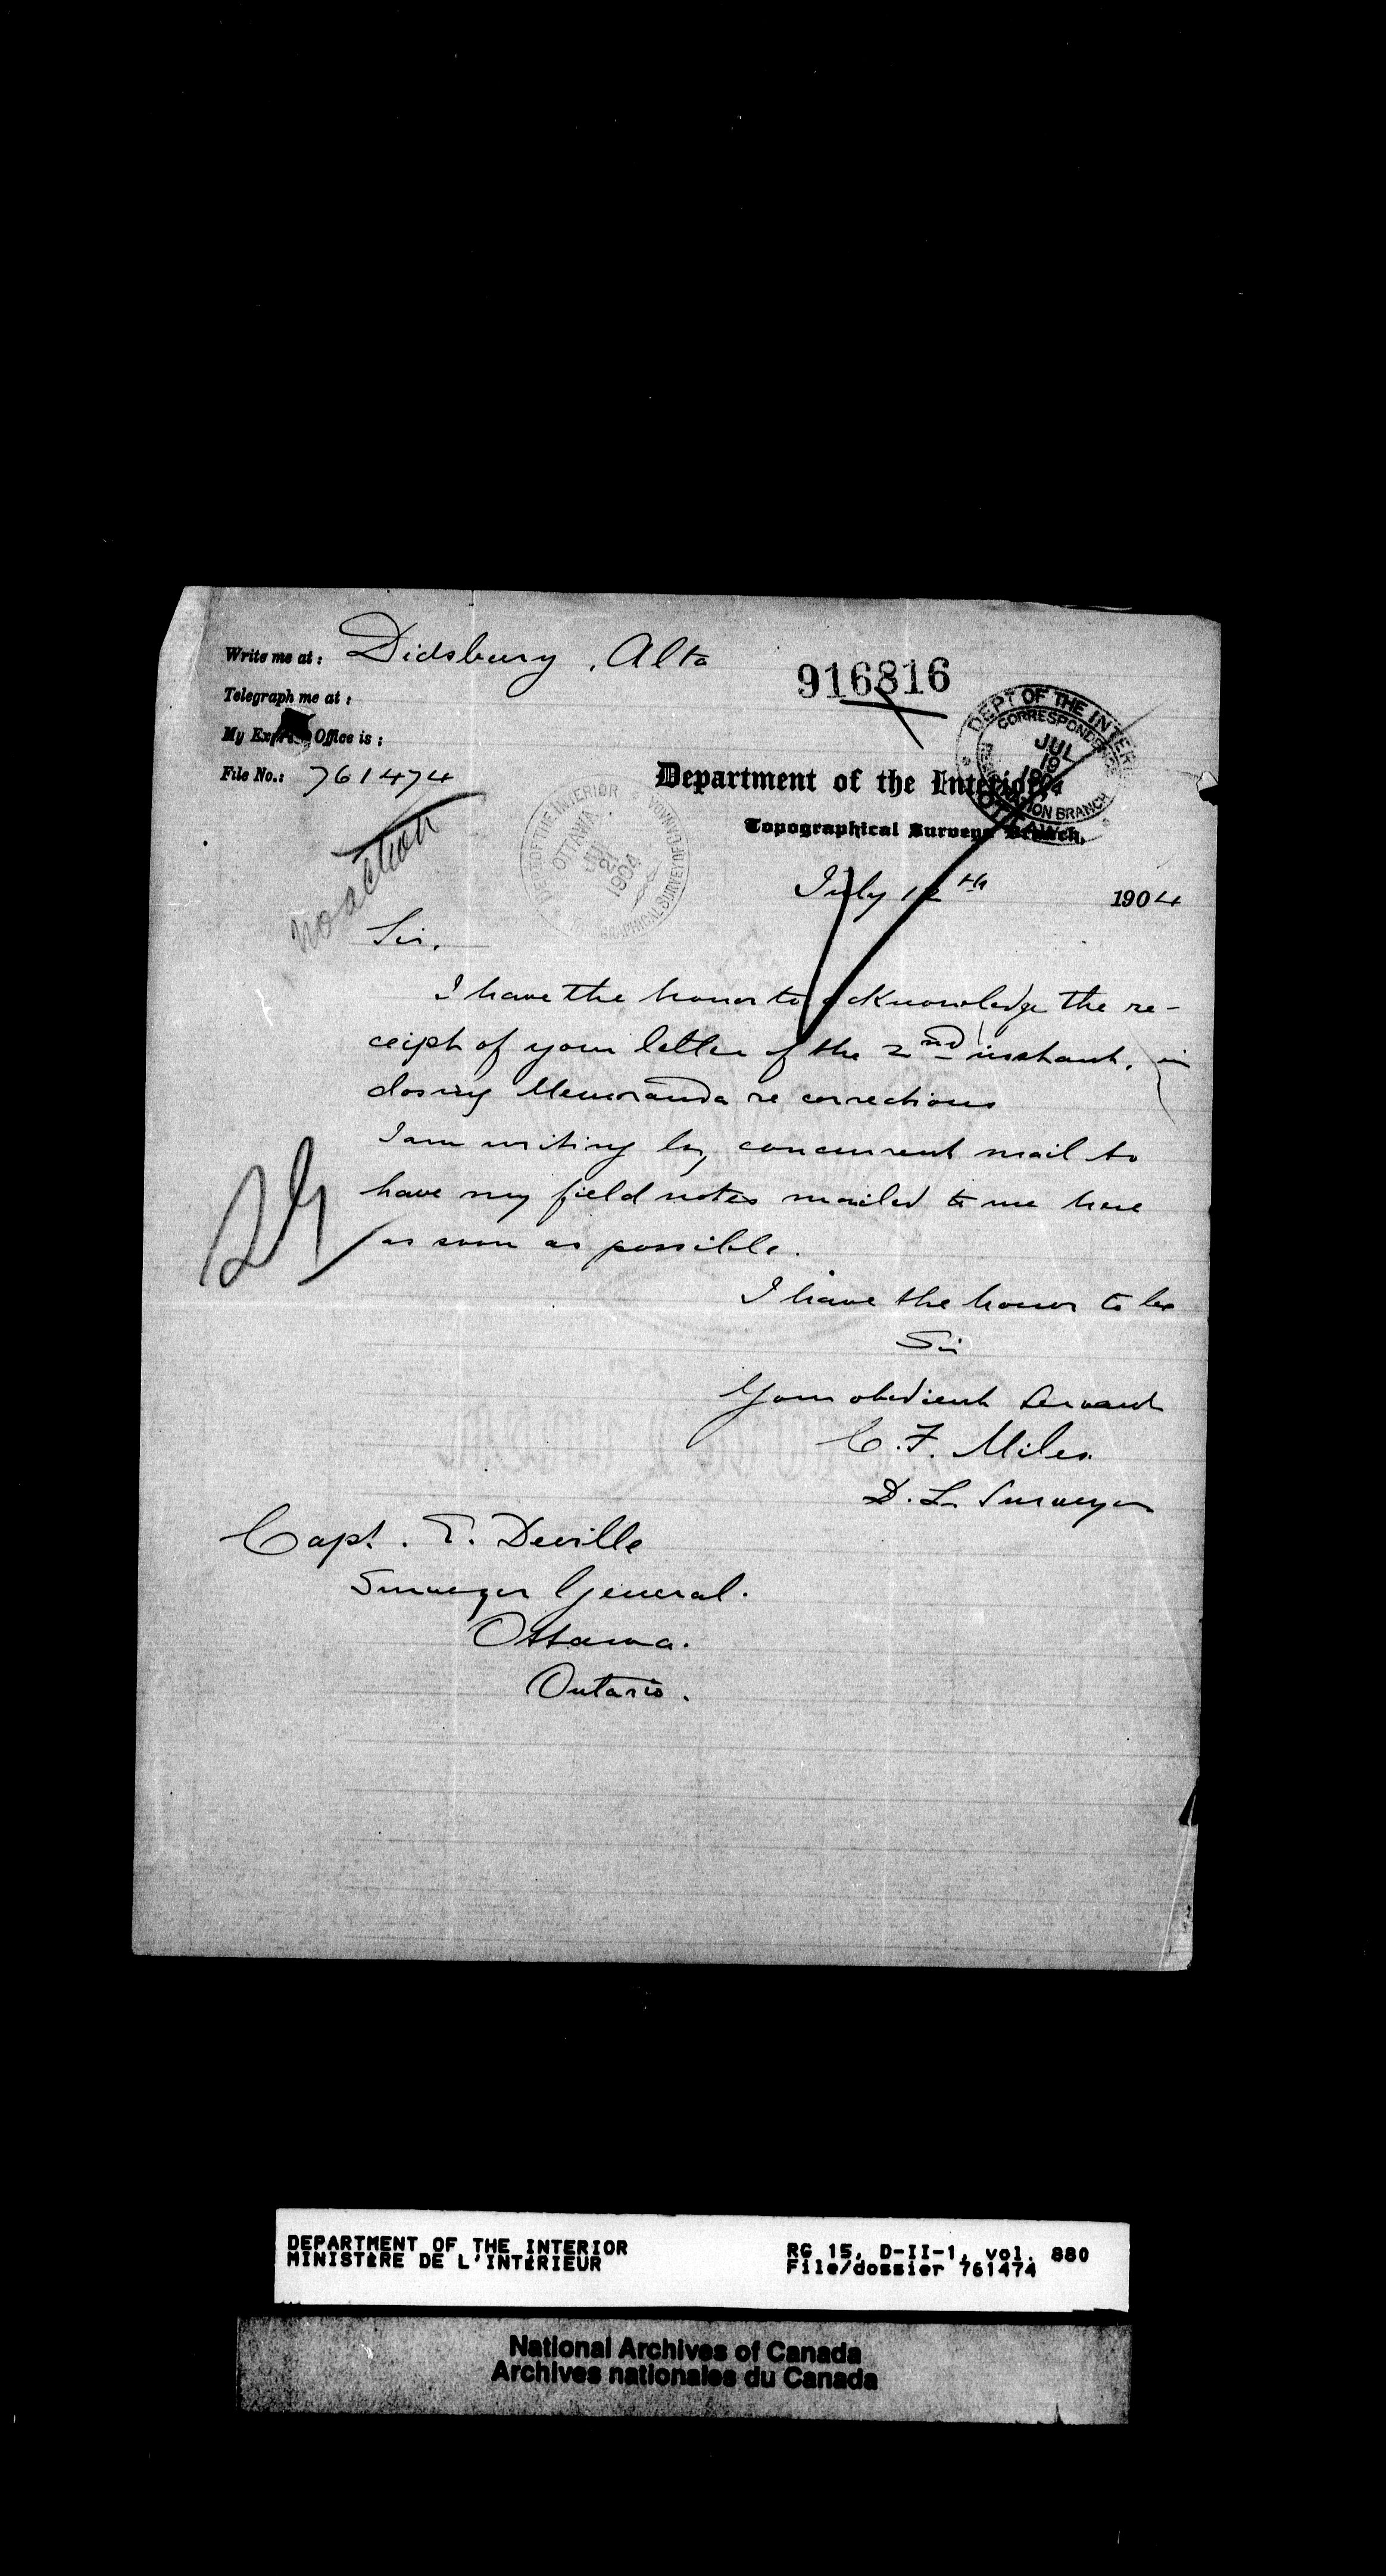 Write me at: Didsbury, Alta
Telegraph me at:
My Express Office is:
File No.: 761474
916816
DEPT OF THE INTERIOR
CORRESPONDENCE
REGISTRATION BRANCH
JUL
19
1904
OTTAWA
Department of the Interior,
Topographical Surveys Branch,
DEPT OF THE INTERIOR
OTTAWA
JUL
21
1904
TOPOGRAPHICAL SURVEY OF CANADA
no action
July 12th 1904
Sir.
I have the honor to acknowledge the re-
ceipt of your letter of the 2nd instant, in
closing Memoranda re corrections
I am writing by concurrent mail to
have my field notes mailed to me here
as soon as possible.
I have the honor to be
Sir
Your obedient Servant
C. F. Miles.
D. L. Surveyor
Capt. E. Deville
Surveyor General.
Ottawa.
Ontario.
DEPARTMENT OF THE INTERIOR
MINISTÈRE DE L'INTÉRIEUR
RG 15, D-II-1, vol. 880
File/dossier 761474
National Archives of Canada
Archives nationales du Canada